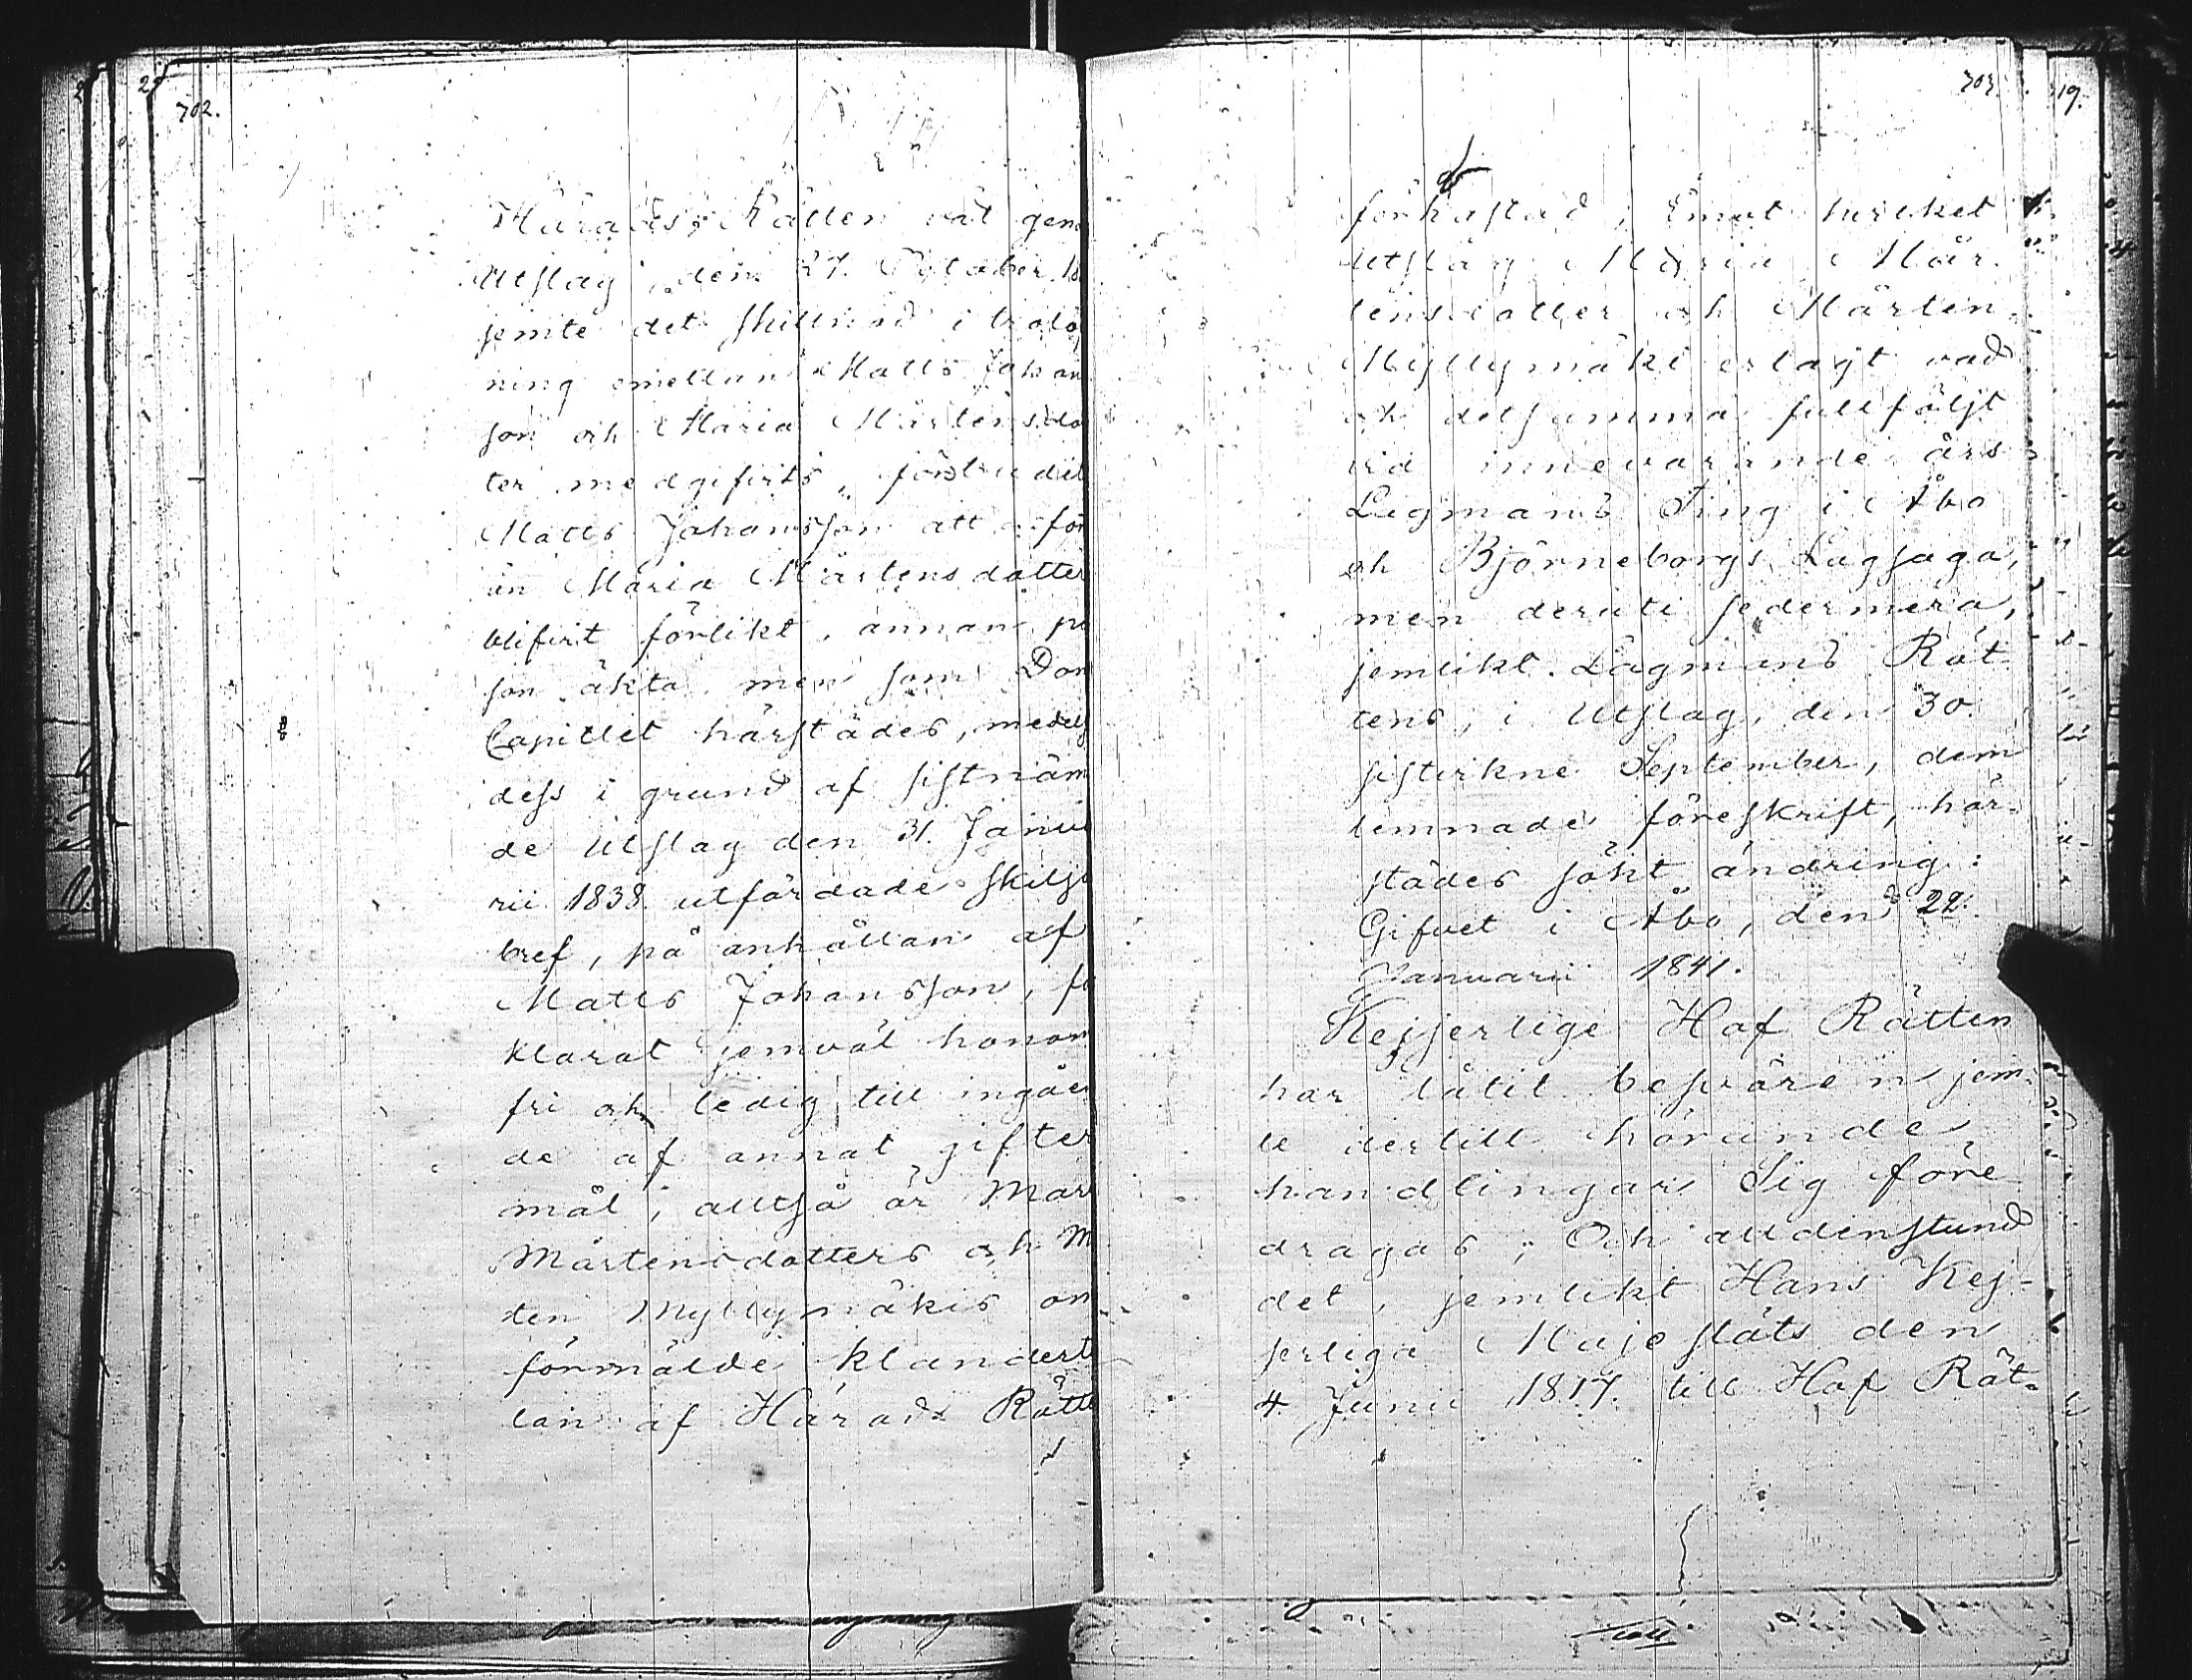 702.
Härads Rätten väl geno
Utslag den 27. October 18
jemte det skillnad i trolof
ning emellan Matts Johans
son och Maria Mårtensdo
ter medgifvits, förbudit
Matts Johansson att för
än Maria Mårtensdotter
blifvit förlikt, annan per
son äkta men som Dom
Capitlet härstädes, medels
dess i grund af sistnäm
de Utslag den 31. Janua
rii 1838 utfärdade skiljo
bref, på anhållan af
Matts Johansson, för
klarat jemväl honom
fri och ledig till ingåen
de af annat gifter
mål; alltså är Mari
Mårtensdotters och M
ten Myllymäkis om
förmälde klandert
lan af Härads Rätte
703.
förkastad; Emot hvilket
Utslag Maria Mår-
tensdotter och Mårten
Myllymäki erlagt vad
och detsamma fullföljt
vid innevarande års
Lagmans Ting i Åbo
och Björneborgs Lagsaga,
men deruti sedermera,
jemlikt Lagmans Rät
tens, i Utslag, den 30.
sistvikne September, dem
lemnade föreskrift, här-
städes sökt ändring:
Gifvet i Åbo, den 22.
Januarii 1841.
Kejserlige Hof Rätten
har låtit besvären jem-
te dertill hörande
handlingar Sig före
dragas; Och alldenstund
det, jemlikt Hans Kej-
serliga Majestäts den
4. Junii 1817. till Hof Rät-
19.